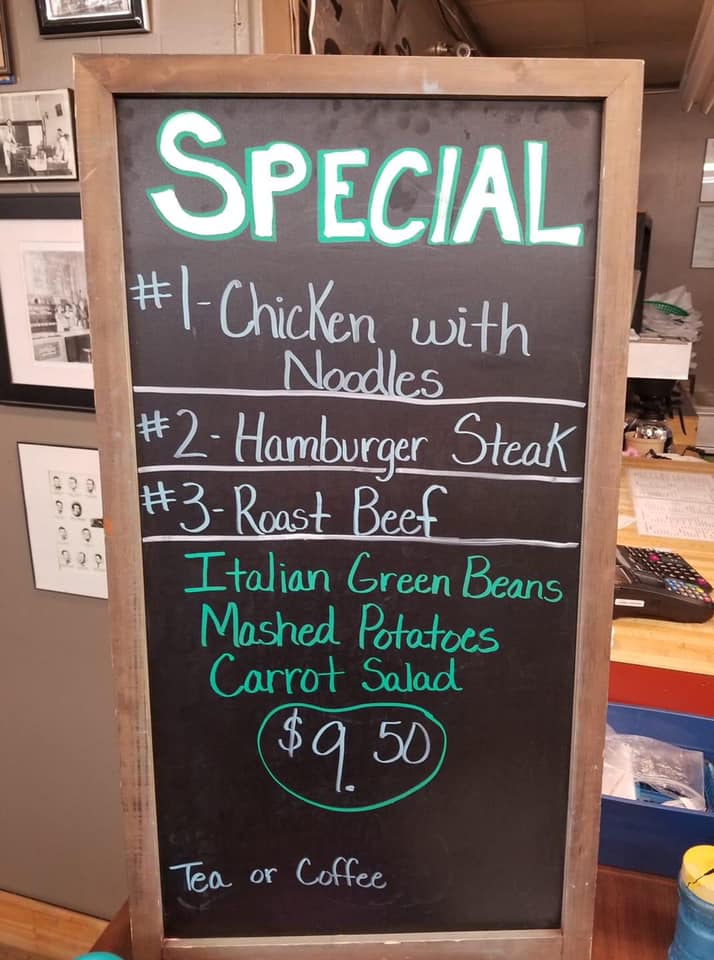 SPECIAL
#1-Chicken with
Noodles
#2-Hamburger Steak
#3-Roast Beef
Italian Green Beans
Mashed Potatoes
Carrot Salad
$9.50
Tea or Coffee